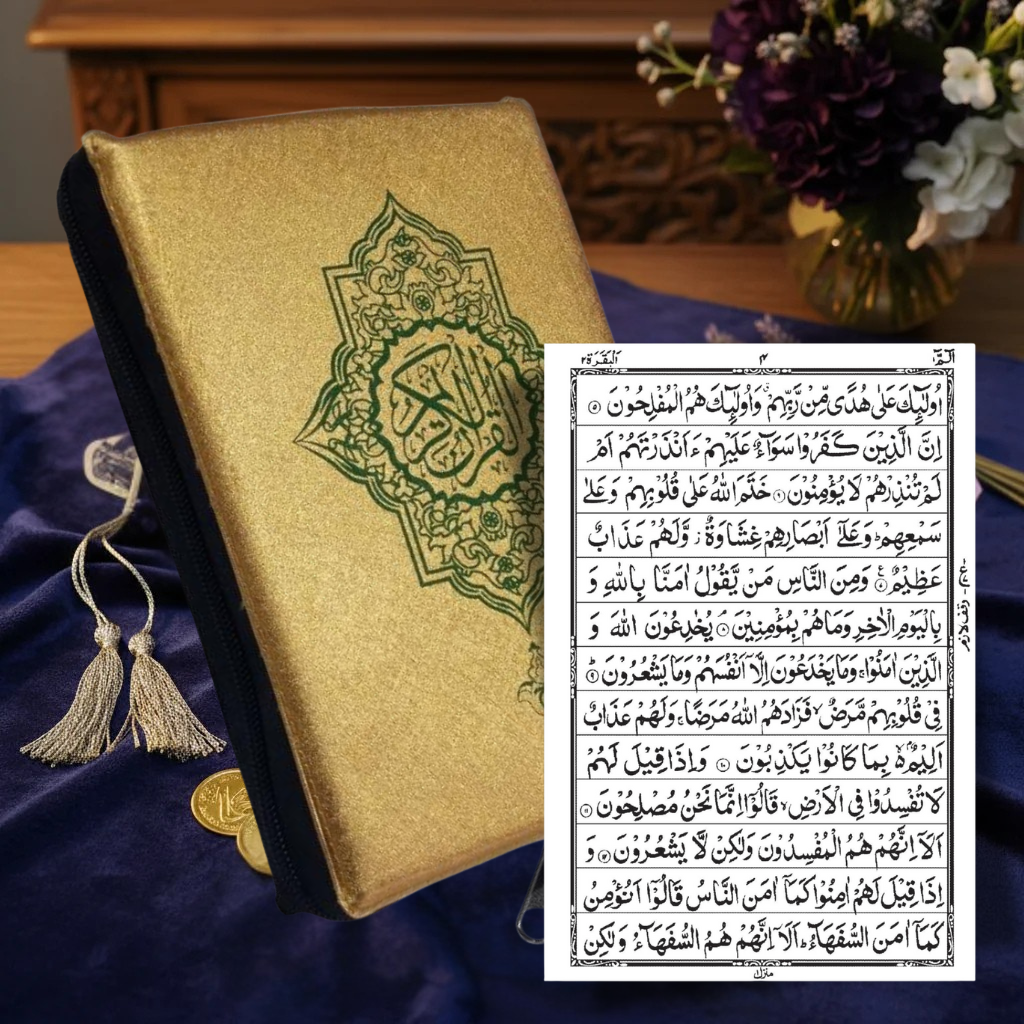 القرآن الكريم
الٓمّٓ ۱
۴
اَلْبَقَرَة ۲
اُولٰٓئِكَ عَلٰى هُدًى مِّنْ رَّبِّهِمْ ۙ وَاُولٰٓئِكَ هُمُ الْمُفْلِحُوْنَ ۵
اِنَّ الَّذِيْنَ كَفَرُوْا سَوَآءٌ عَلَيْهِمْ ءَاَنْذَرْتَهُمْ اَمْ
لَمْ تُنْذِرْهُمْ لَا يُؤْمِنُوْنَ ۶ خَتَمَ اللّٰهُ عَلٰى قُلُوْبِهِمْ وَعَلٰى
سَمْعِهِمْ ؕ وَعَلٰٓى اَبْصَارِهِمْ غِشَاوَةٌ ز وَّلَهُمْ عَذَابٌ
عَظِيْمٌ ۷ وَمِنَ النَّاسِ مَنْ يَّقُوْلُ اٰمَنَّا بِاللّٰهِ وَ
بِالْيَوْمِ الْاٰخِرِ وَمَا هُمْ بِمُؤْمِنِيْنَ ۘ ۸ يُخٰدِعُوْنَ اللّٰهَ وَ
الَّذِيْنَ اٰمَنُوْا ۚ وَمَا يَخْدَعُوْنَ اِلَّآ اَنْفُسَهُمْ وَمَا يَشْعُرُوْنَ ؕ ۹
فِيْ قُلُوْبِهِمْ مَّرَضٌ ۙ فَزَادَهُمُ اللّٰهُ مَرَضًا ۚ وَلَهُمْ عَذَابٌ
اَلِيْمٌ ۢ ۙ بِمَا كَانُوْا يَكْذِبُوْنَ ۱۰ وَاِذَا قِيْلَ لَهُمْ
لَا تُفْسِدُوْا فِي الْاَرْضِ ۙ قَالُوْٓا اِنَّمَا نَحْنُ مُصْلِحُوْنَ ۱۱
اَلَآ اِنَّهُمْ هُمُ الْمُفْسِدُوْنَ وَلٰكِنْ لَّا يَشْعُرُوْنَ ۱۲ وَ
اِذَا قِيْلَ لَهُمْ اٰمِنُوْا كَمَآ اٰمَنَ النَّاسُ قَالُوْٓا اَنُؤْمِنُ
كَمَآ اٰمَنَ السُّفَهَآءُ ؕ اَلَآ اِنَّهُمْ هُمُ السُّفَهَآءُ وَلٰكِنْ
وقف لازم
منزل